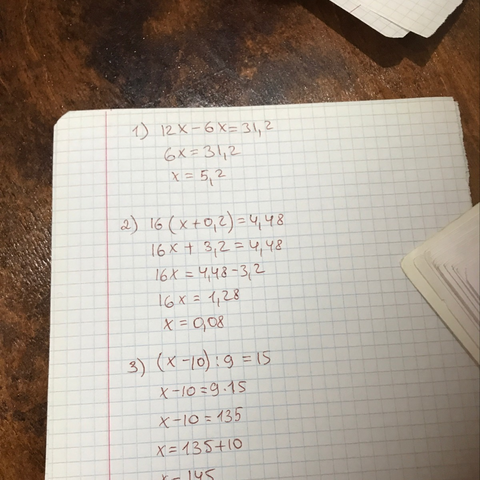 1) 12x-6x=31,2
6x=31,2
x=5,2
2) 16(x+0,2)=4,48
16x+3,2=4,48
16x=4,48-3,2
16x=1,28
x=0,08
3) (x-10):9=15
x-10=9·15
x-10=135
x=135+10
x=145